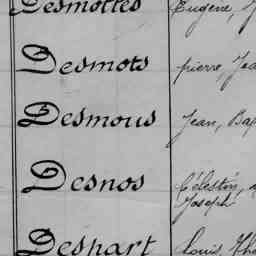 Desmottes Eugène,
Desmots pierre, Jea
Desmous Jean, Bap
Desnos Célestin,
Joseph
Despart Louis, Tho